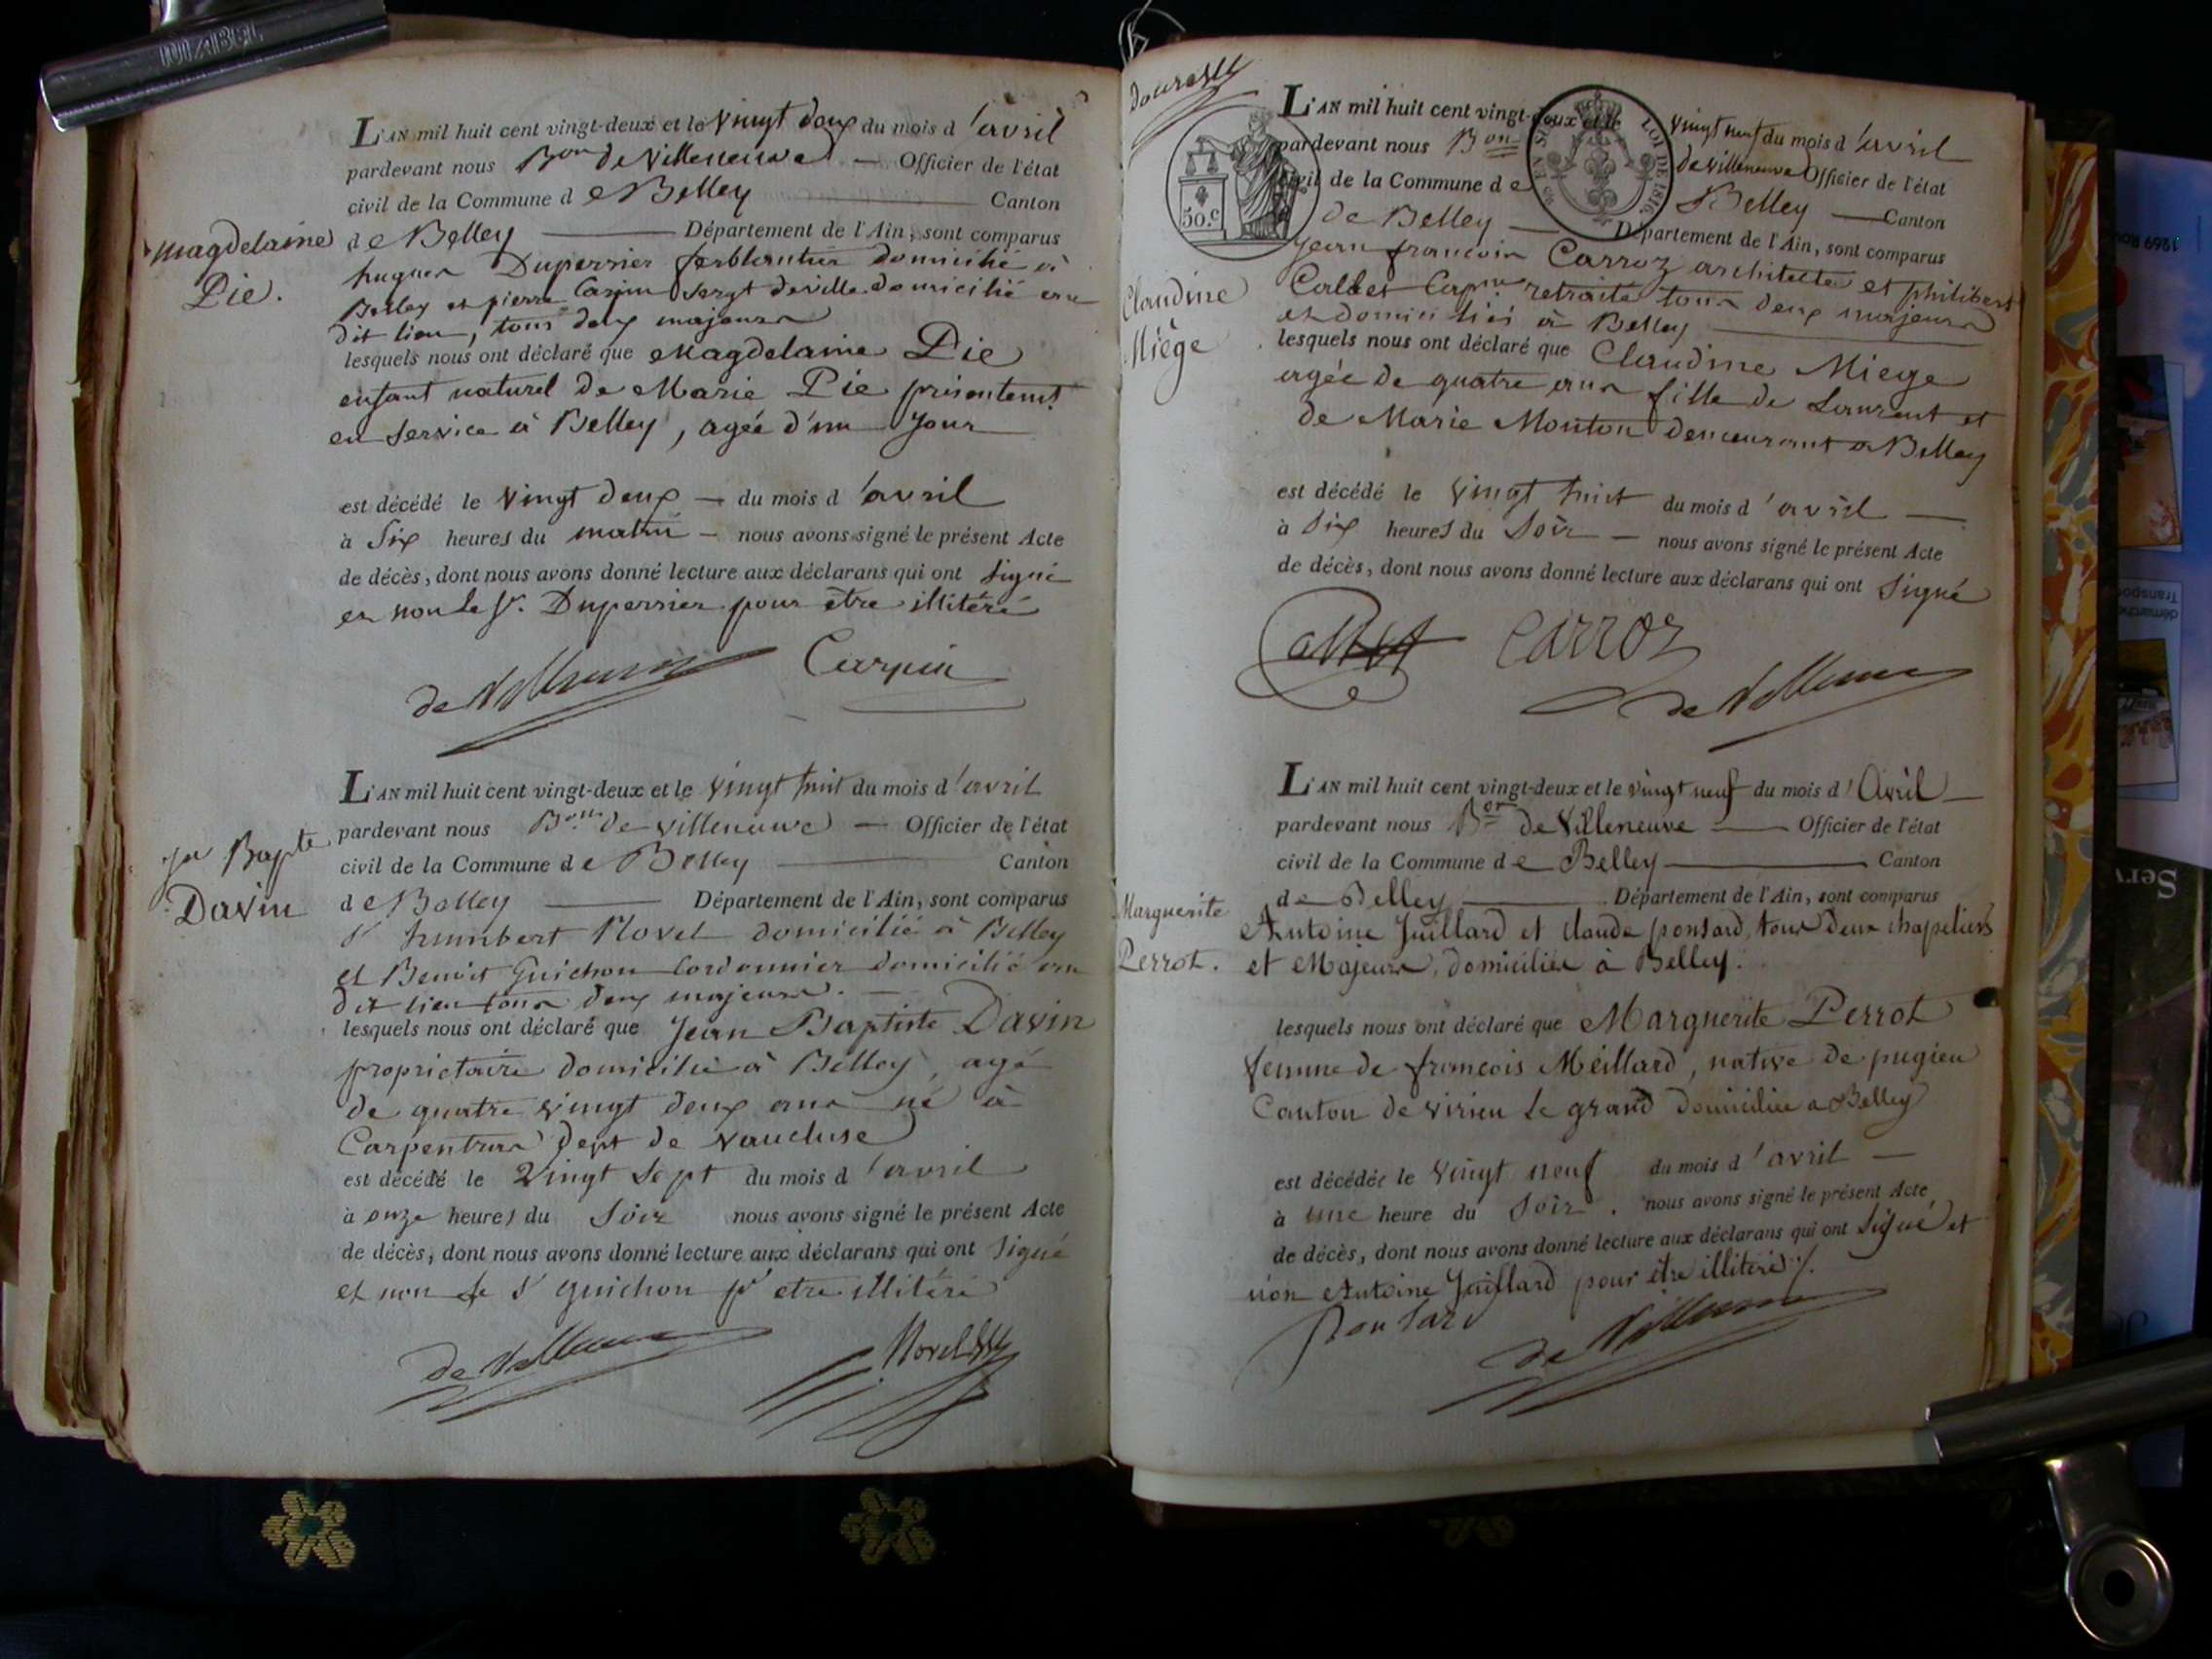 Magdelaine
Pie.
L'AN mil huit cent vingt-deux et le vingt deux du mois d'avril
pardevant nous Bon de Villeneuve — Officier de l'état
civil de la Commune de Belley Canton
de Belley Département de l'Ain, sont comparus
hugues Duperrier ferblantier domicilié à
Belley et pierre Carpin sergt de ville domicilié au
dit lieu, tous deux majeurs
lesquels nous ont déclaré que Magdelaine Pie
enfant naturel de Marie Pie présentemt
en service à Belley, agée d'un jour
est décédé le vingt deux — du mois d'avril
à six heures du matin — nous avons signé le présent Acte
de décès, dont nous avons donné lecture aux déclarans qui ont signé
et non le Sr. Duperrier pour être illitéré
de Villeneuve Carpin
Jn Bapte
Davin
L'AN mil huit cent vingt-deux et le vingt huit du mois d'avril
pardevant nous Bon de Villeneuve — Officier de l'état
civil de la Commune de Belley Canton
de Belley Département de l'Ain, sont comparus
Sr humbert Novel domicilié à Belley
et Benoit Guichon Cordonnier domicilié au
dit lieu tous deux majeurs. —
lesquels nous ont déclaré que Jean Baptiste Davin
propriétaire domicilié à Belley, agé
de quatre vingt deux ans né à
Carpentras dept de Vaucluse
est décédé le vingt sept du mois d'avril
à onze heures du soir nous avons signé le présent Acte
de décès, dont nous avons donné lecture aux déclarans qui ont signé
et non le Sr Guichon pr etre illitéré
de Villeneuve Novel
50.c
LOI DE 1816
Claudine
Miège
L'AN mil huit cent vingt-deux et le vingt neuf du mois d'avril
pardevant nous Bon de Villeneuve Officier de l'état
civil de la Commune de Belley — Canton
de Belley — Département de l'Ain, sont comparus
Jean francois Carroz architecte et philibert
Callet Capne retraité tous deux majeurs
et domiciliés à Belley
lesquels nous ont déclaré que Claudine Miege
agée de quatre ans fille de Laurent et
de Marie Mouton demeurant a Belley
est décédé le vingt huit du mois d'avril —
à six heures du soir — nous avons signé le présent Acte
de décès, dont nous avons donné lecture aux déclarans qui ont signé
Callet Carroz
de Villeneuve
Marguerite
Perrot.
L'AN mil huit cent vingt-deux et le vingt neuf du mois d'Avril —
pardevant nous Bon de Villeneuve — Officier de l'état
civil de la Commune de Belley Canton
de Belley Département de l'Ain, sont comparus
Antoine Juillard et Claude ponsard, tous deux chapeliers
et Majeurs, domiciliés à Belley.
lesquels nous ont déclaré que Marguerite Perrot
femme de françois Meillard, native de pugieu
Canton de virieu le grand domiciliée a Belley
est décédée le vingt neuf du mois d'avril —
à une heure du soir. nous avons signé le présent Acte
de décès, dont nous avons donné lecture aux déclarans qui ont signé et
non Antoine Juillard pour être illitéré ./.
Ponsard
de Villeneuve